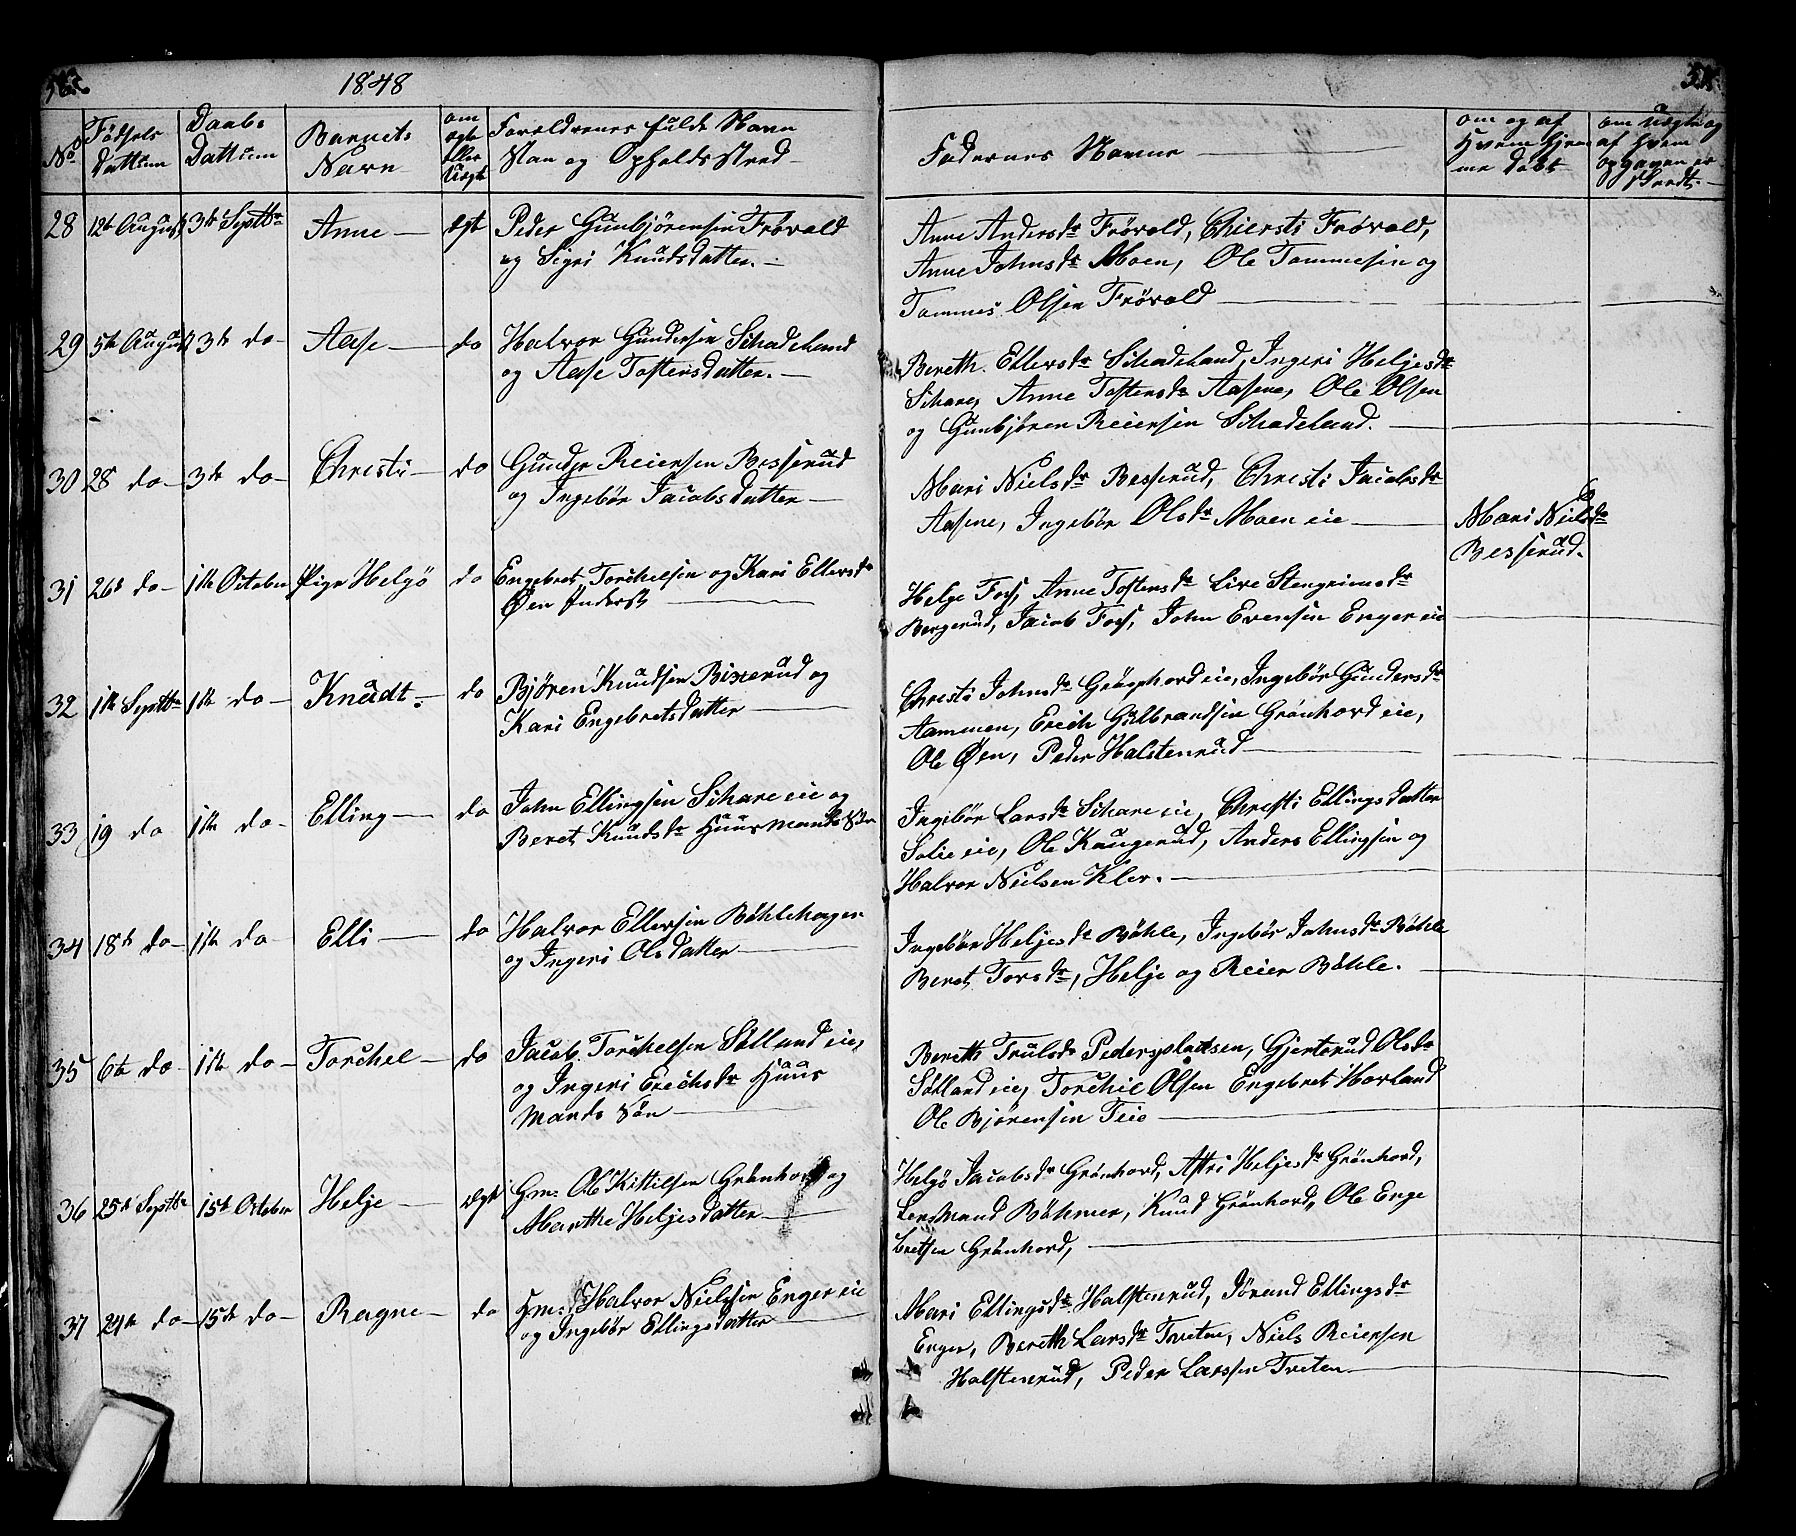 1848
No
Fødsels Dattum
Daabs Dattum
Barnets Navn
om ægte eller Uægte
Forældrenes fulde Navn Stan og Opholds sted
Fadernes Navne
om og af Hvem Hjemme døbt
om Uægte og af hvem opgaven er
28 12te August 3de Septbr Anne ægt Peder Gunbjørensen Frøvold
og Sigri Knudsdatter.
Anne Andersdr Frøvold, Chiersti Frøvold,
Anne Johnsdr Moen, Ole Tommesen og
Tommes Olsen Frøvold
29 5te August 3de do Aase do Halvor Gundersen Schadeland
og Aase Tostensdatter.
Bereth Ellersdr Schadeland, Ingeri Heljesdr
Schare, Anne Tostensdr Aasene, Ole Olsen
og Gunbjøren Reiersen Schadeland.
30 28 do 3de do Christi do Gunder Reiersen Besserud
og Ingebør Jacobsdatter
Mari Nielsdr Besserud, Christi Jacobsdr
Aasene, Ingebør Olsdr Moen eie
Mari Nielsdr
Besserud.
31 26de do 1ste October Pige Helgö do Engebret Torchelsen og Kari Ellersdr
Øen
Helge Foss, Anne Tostensdr Live Stengrimsdr
Bergerud, Jacob Foss, John Evensen Enger eie
32 1ste Septbr 1ste do Knudt. do Bjøren Knudsen Bixerud og
Kari Engebretsdatter
Christi Johnsdr eie, Ingebør Gundersdr
Aammen, Erich Gulbrandsen Grønhord eie,
Ole Øen, Peder Halstenrud
33 19 do 1ste do Elling do John Ellingsen Schare eie og
Beret Knudsdr Huusmands
Ingebør Larsdr Schare eie, Christi Ellingsdatter
Solie eie, Ole Kaugerud, Anders Ellingsen og
Halvor Nielsen Klev.
34 18de do 1ste do Elli do Halvor Ellersen Böhlehagen
og Ingeri Olsdatter
Ingebør Heljesdr Böhle, Ingebør Johnsdr Böhle
Beret Torsdr, Helje og Reier Böhle.
35 6te do 1ste do Torchel do Jacob Torchelsen Sølland eie,
og Ingeri Erichsdr Huus
Mands Søn
Bereth Trulsdr Pedersplatsen, Gjertrud Olsdr
Sølland eie, Torchil Olsen Engebret Horland
Ole Bjørensen Teie
36 25de Septbr 15de October Helje ægt Gm. Ole Kittilsen Grønhord og
Marthe Heljesdatter
Helgö Jacobsdr Grønhord, Astri Heljesdr Grønhord,
Lensmand Böhmer, Knud Grønhord, Ole Enge
bretsen Grønhord,
37 24de do 15de do Ragne do Gm. Halvor Nielsen Enger eie
og Ingebør Ellingsdatter
Mari Ellingsdr Halstenrud, Jørand Ellingsdr
Enger, Bereth Larsdr Treten, Niels Reiersen
Halstenrud, Peder Larssen Treten